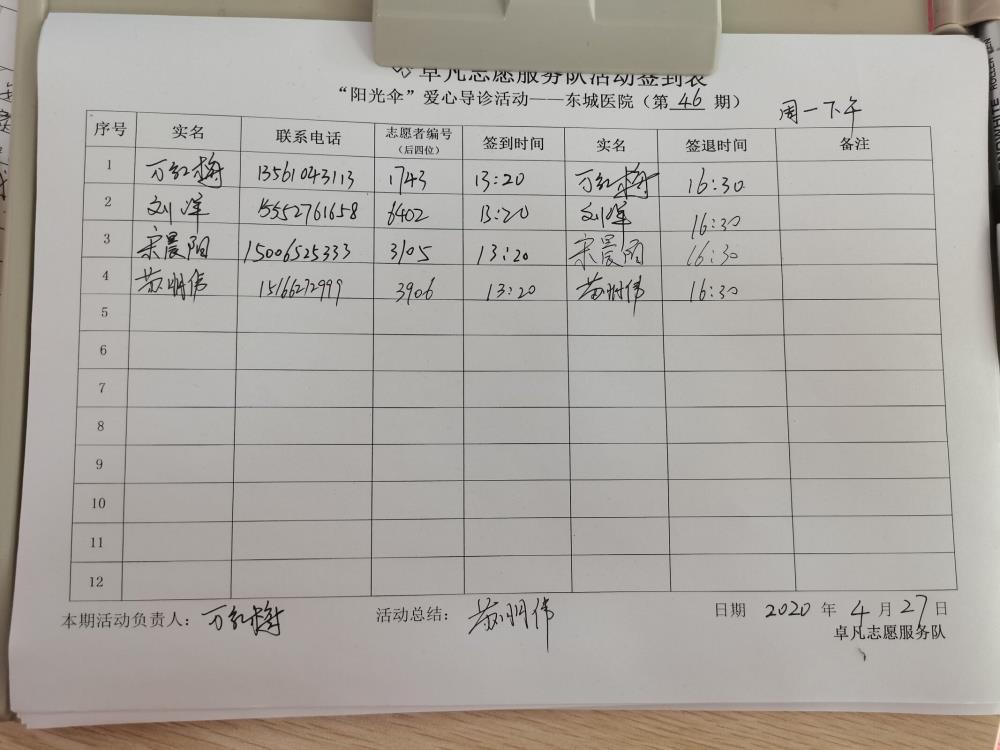 卓凡志愿服务队活动签到表
“阳光伞”爱心导诊活动——东城医院（第 46 期） 周一下午
序号 实名 联系电话 志愿者编号（后四位） 签到时间 实名 签退时间 备注
1 万红梅 13561043113 1743 13:20 万红梅 16:30
2 刘峰 15552761658 6402 13:20 刘峰 16:30
3 宋晨阳 15006525333 3105 13:20 宋晨阳 16:30
4 苏明伟 15166272999 3906 13:20 苏明伟 16:30
5
6
7
8
9
10
11
12
本期活动负责人：万红梅 活动总结：苏明伟 日期 2020 年 4 月 27 日
卓凡志愿服务队